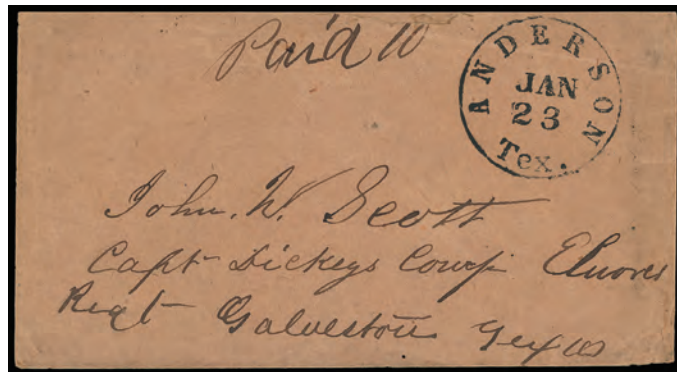 Paid 10
ANDERSON
JAN
23
Tex.
John. W. Scott
Capt Dickeys Comp Elmores
Regt Galveston Texas